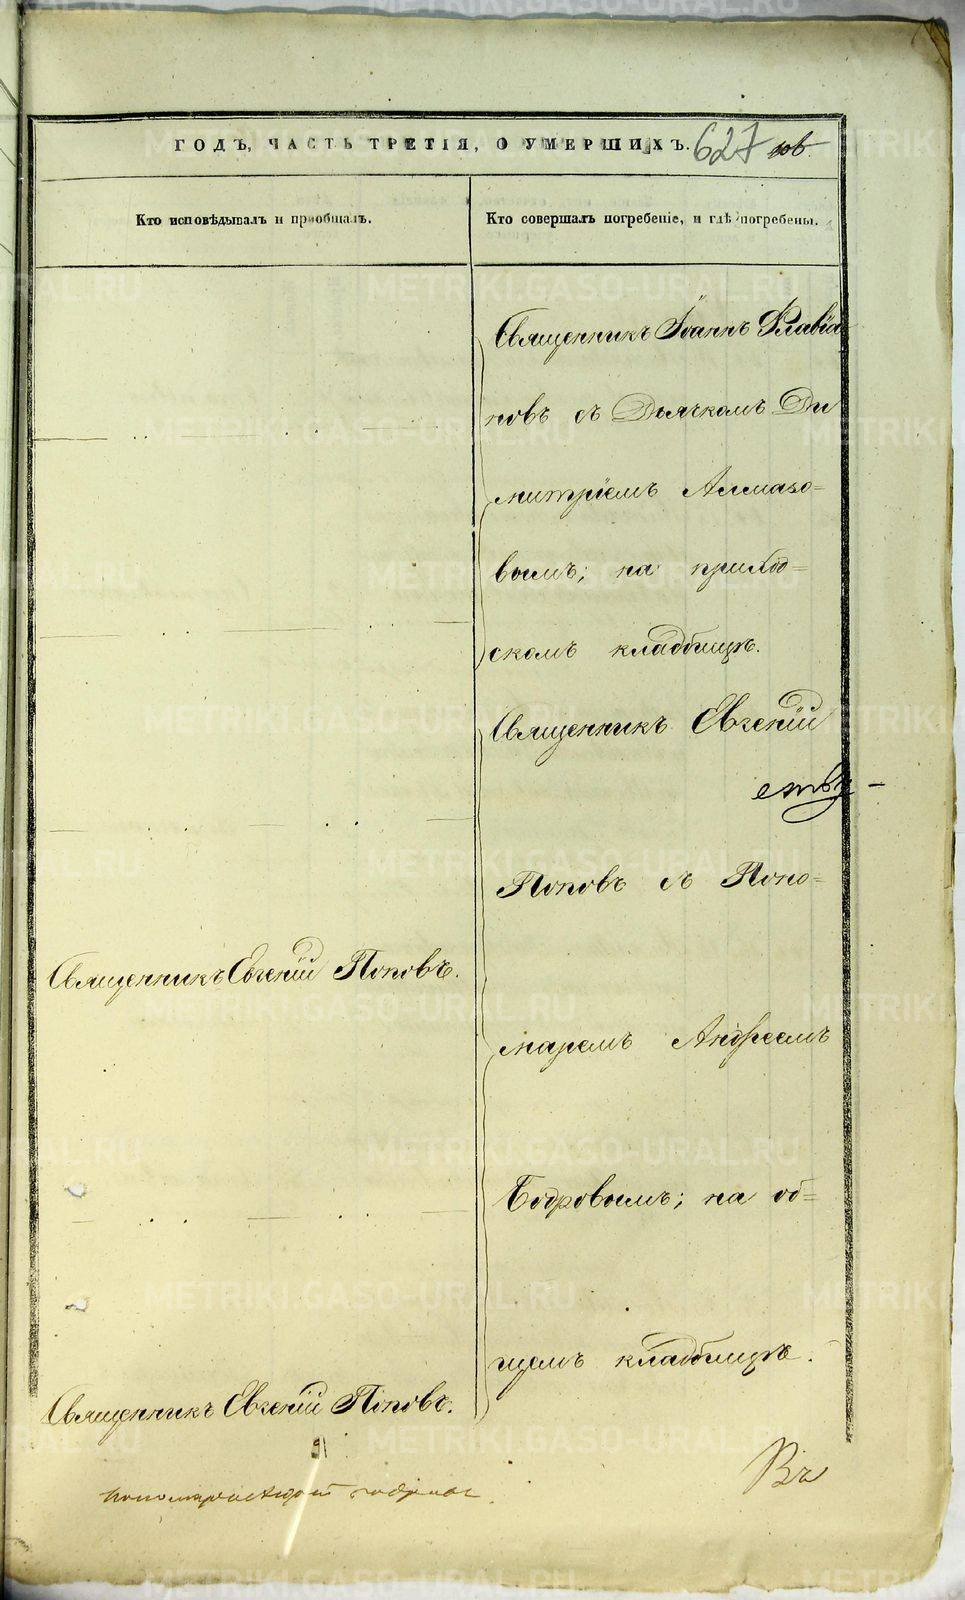 ГОДЪ, ЧАСТЬ ТРЕТІЯ, О УМЕРШИХЪ. 627
Кто исповѣдывалъ и пріобщалъ.
Кто совершалъ погребеніе, и гдѣ погребены.
Священникъ Іоаннъ Флавіа
новъ съ Дьячкомъ Ди
митріемъ Алмазо=
вымъ; на приход=
скомъ кладбищѣ.
Священникъ Евгеній
Поповъ съ Поно=
Священникъ Евгеній Поповъ.
маремъ Андреемъ
Бодровымъ; на об=
щемъ кладбищѣ.
Священникъ Евгеній Поповъ.
Въ
METRIKI.GASO-URAL.RU